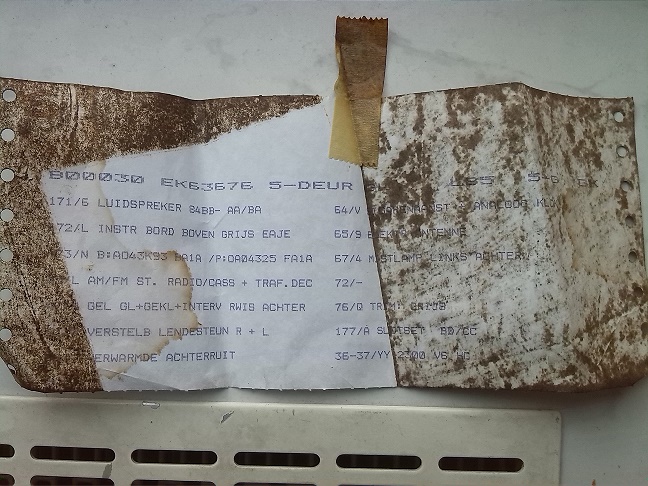 B00030 EK63676 5-DEUR
171/6 LUIDSPREKER 84BB- AA/BA 64/V ANALOOG
72/L INSTR BORD BOVEN GRIJS EAJE 65/9 ANTENNE
/N B:A043K93 PA1A /P:0A04325 FA1A 67/4 MISTLAMP LINKS ACHTER
L AM/FM ST. RADIO/CASS + TRAF.DEC 72/-
GEL GL+GEKL+INTERV RWIS ACHTER 76/Q TRIM: GRIJS
VERSTELB LENDESTEUN R + L 177/A SLOTSET BD/CC
ERWARMDE ACHTERRUIT 36-37/YY 2300 V6 HC